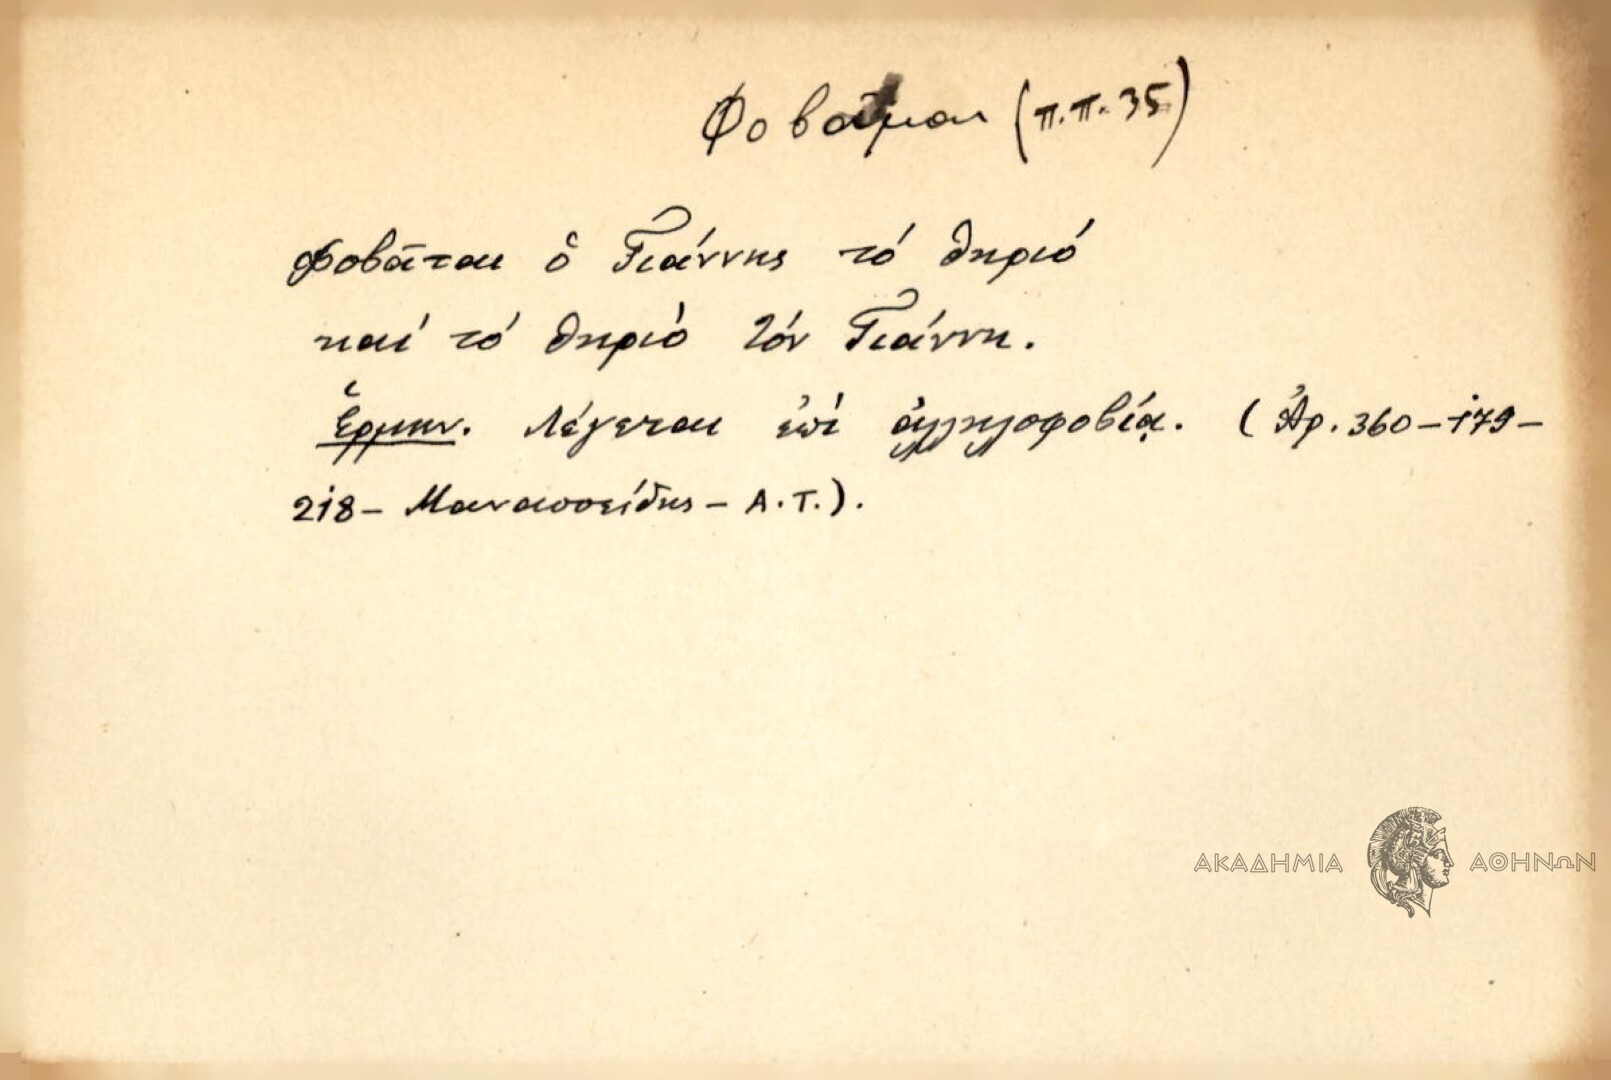 Φοβᾶμαι (π.π. 35)
Φοβᾶται ὁ Γιάννης τό θηριό
καί τό θηριό τόν Γιάννη.
Ἑρμην. Λέγεται ἐπί ἀλληλοφοβίᾳ. (Ἀρ. 360-179-
218- Μανασσείδης - Α.Τ.).
ΑΚΑΔΗΜΙΑ ΑΘΗΝΩΝ